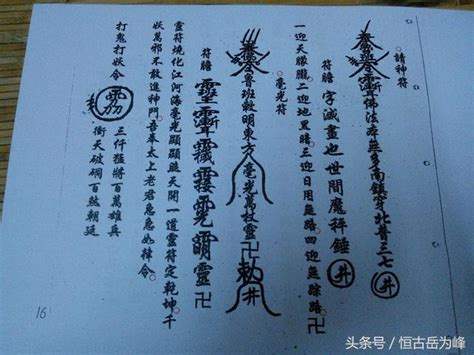 請神符
佛法本無多南鎮穿北昔三七
井
符膽 字滅盡也世間魔秤錘 井
一迎天朦朧。二迎地黑暗。三迎日月無路。四迎無踪路。卍
毫光符
魯班敕明東方毫光萬枝靈卍
敕井
符膽
靈符燒化江河海毫光顯顯照天開一道靈符定乾坤千
妖萬邪不敢進神門。吾奉太上老君急急如律令。
打鬼打妖令
三仟猛將百萬雄兵
衝天破洞百煞朝廷
16
头条号 / 恒古岳为峰